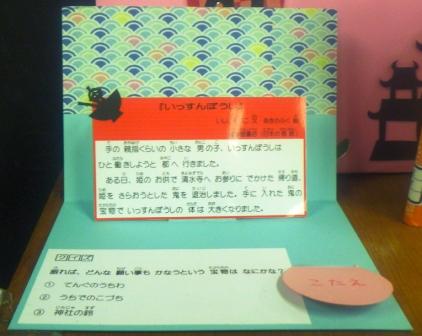 『いっすんぼうし』
いし
こ 文 あきのふく 絵
手の 親指くらいの 小さな 男の子、いっすんぼうしは
ひと働きしようと 都へ 行きました。
ある日、姫の お供で 清水寺へ お参りに でかけた 帰り道、
姫を さらおうとした 鬼を 退治しました。手に 入れた 鬼の
宝物で いっすんぼうしの 体は 大きくなりました。
クイズ
振れば、どんな 願い事も かなうという 宝物は なにかな?
① てんぐのうちわ
② うちでのこづち
③ 神社の鈴
こたえ